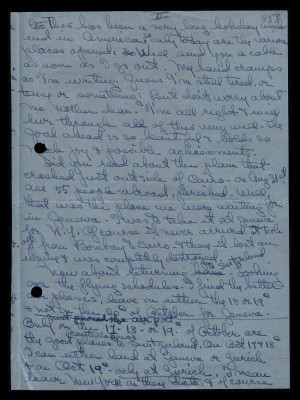 So this has been a very long holiday
and no American
places opened. So will send you a cable
as soon as I go out. My hand cramps
as I'm writing. Guess I'm still tired, or
tense or something? But don't worry about
me mother dear. I'm all right & will
live through all of this very well. The
goal ahead is so beautiful & holds so
much joy & possible achievements.
Did you read about the plane that
crashed just outside of Cairo, on Aug 31st
all 55 people aboard, perished. Well,
that was the plane we were waiting for
in Geneva. I was to take it at Geneva
for N.Y. Of course it never arrived. It took
off from Bombay & Cairo & then it lost an
& was completely destroyed.
Now about returning Looking
over the flying schedules. I find the better
planes, leave on either the 18 or 19th
of October for Geneva.
Only on 17-18-or 19th of October are
the good planes to Switzerland. On Oct 17 & 18th
I can either land at Geneva or Zurich
& on Oct 19th only at Zurich. I mean
leave New York on these dates, & of course